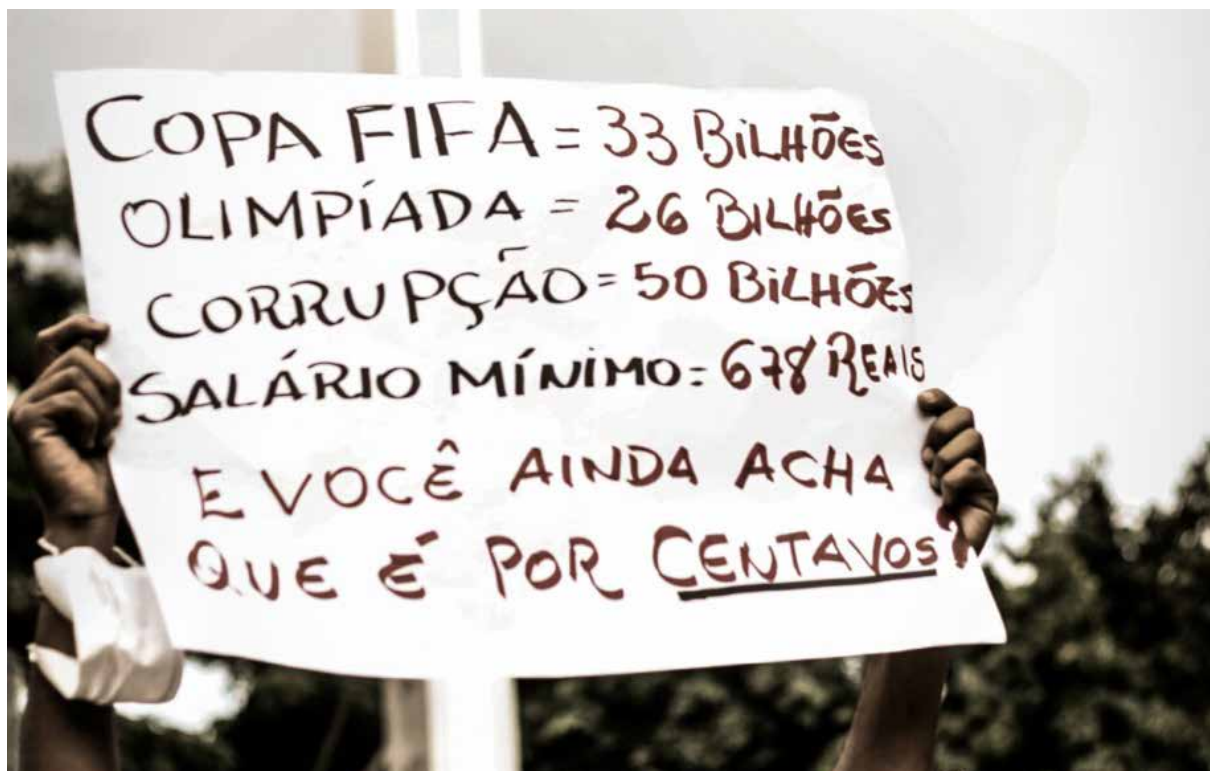 COPA FIFA = 33 BiLHÕES
OLIMPÍADA = 26 BiLHÕES
CORRUPÇÃO = 50 BiLHÕES
SALÁRIO MÍNIMO = 678 REAIS
E VOCÊ AINDA ACHA
QUE É POR CENTAVOS?